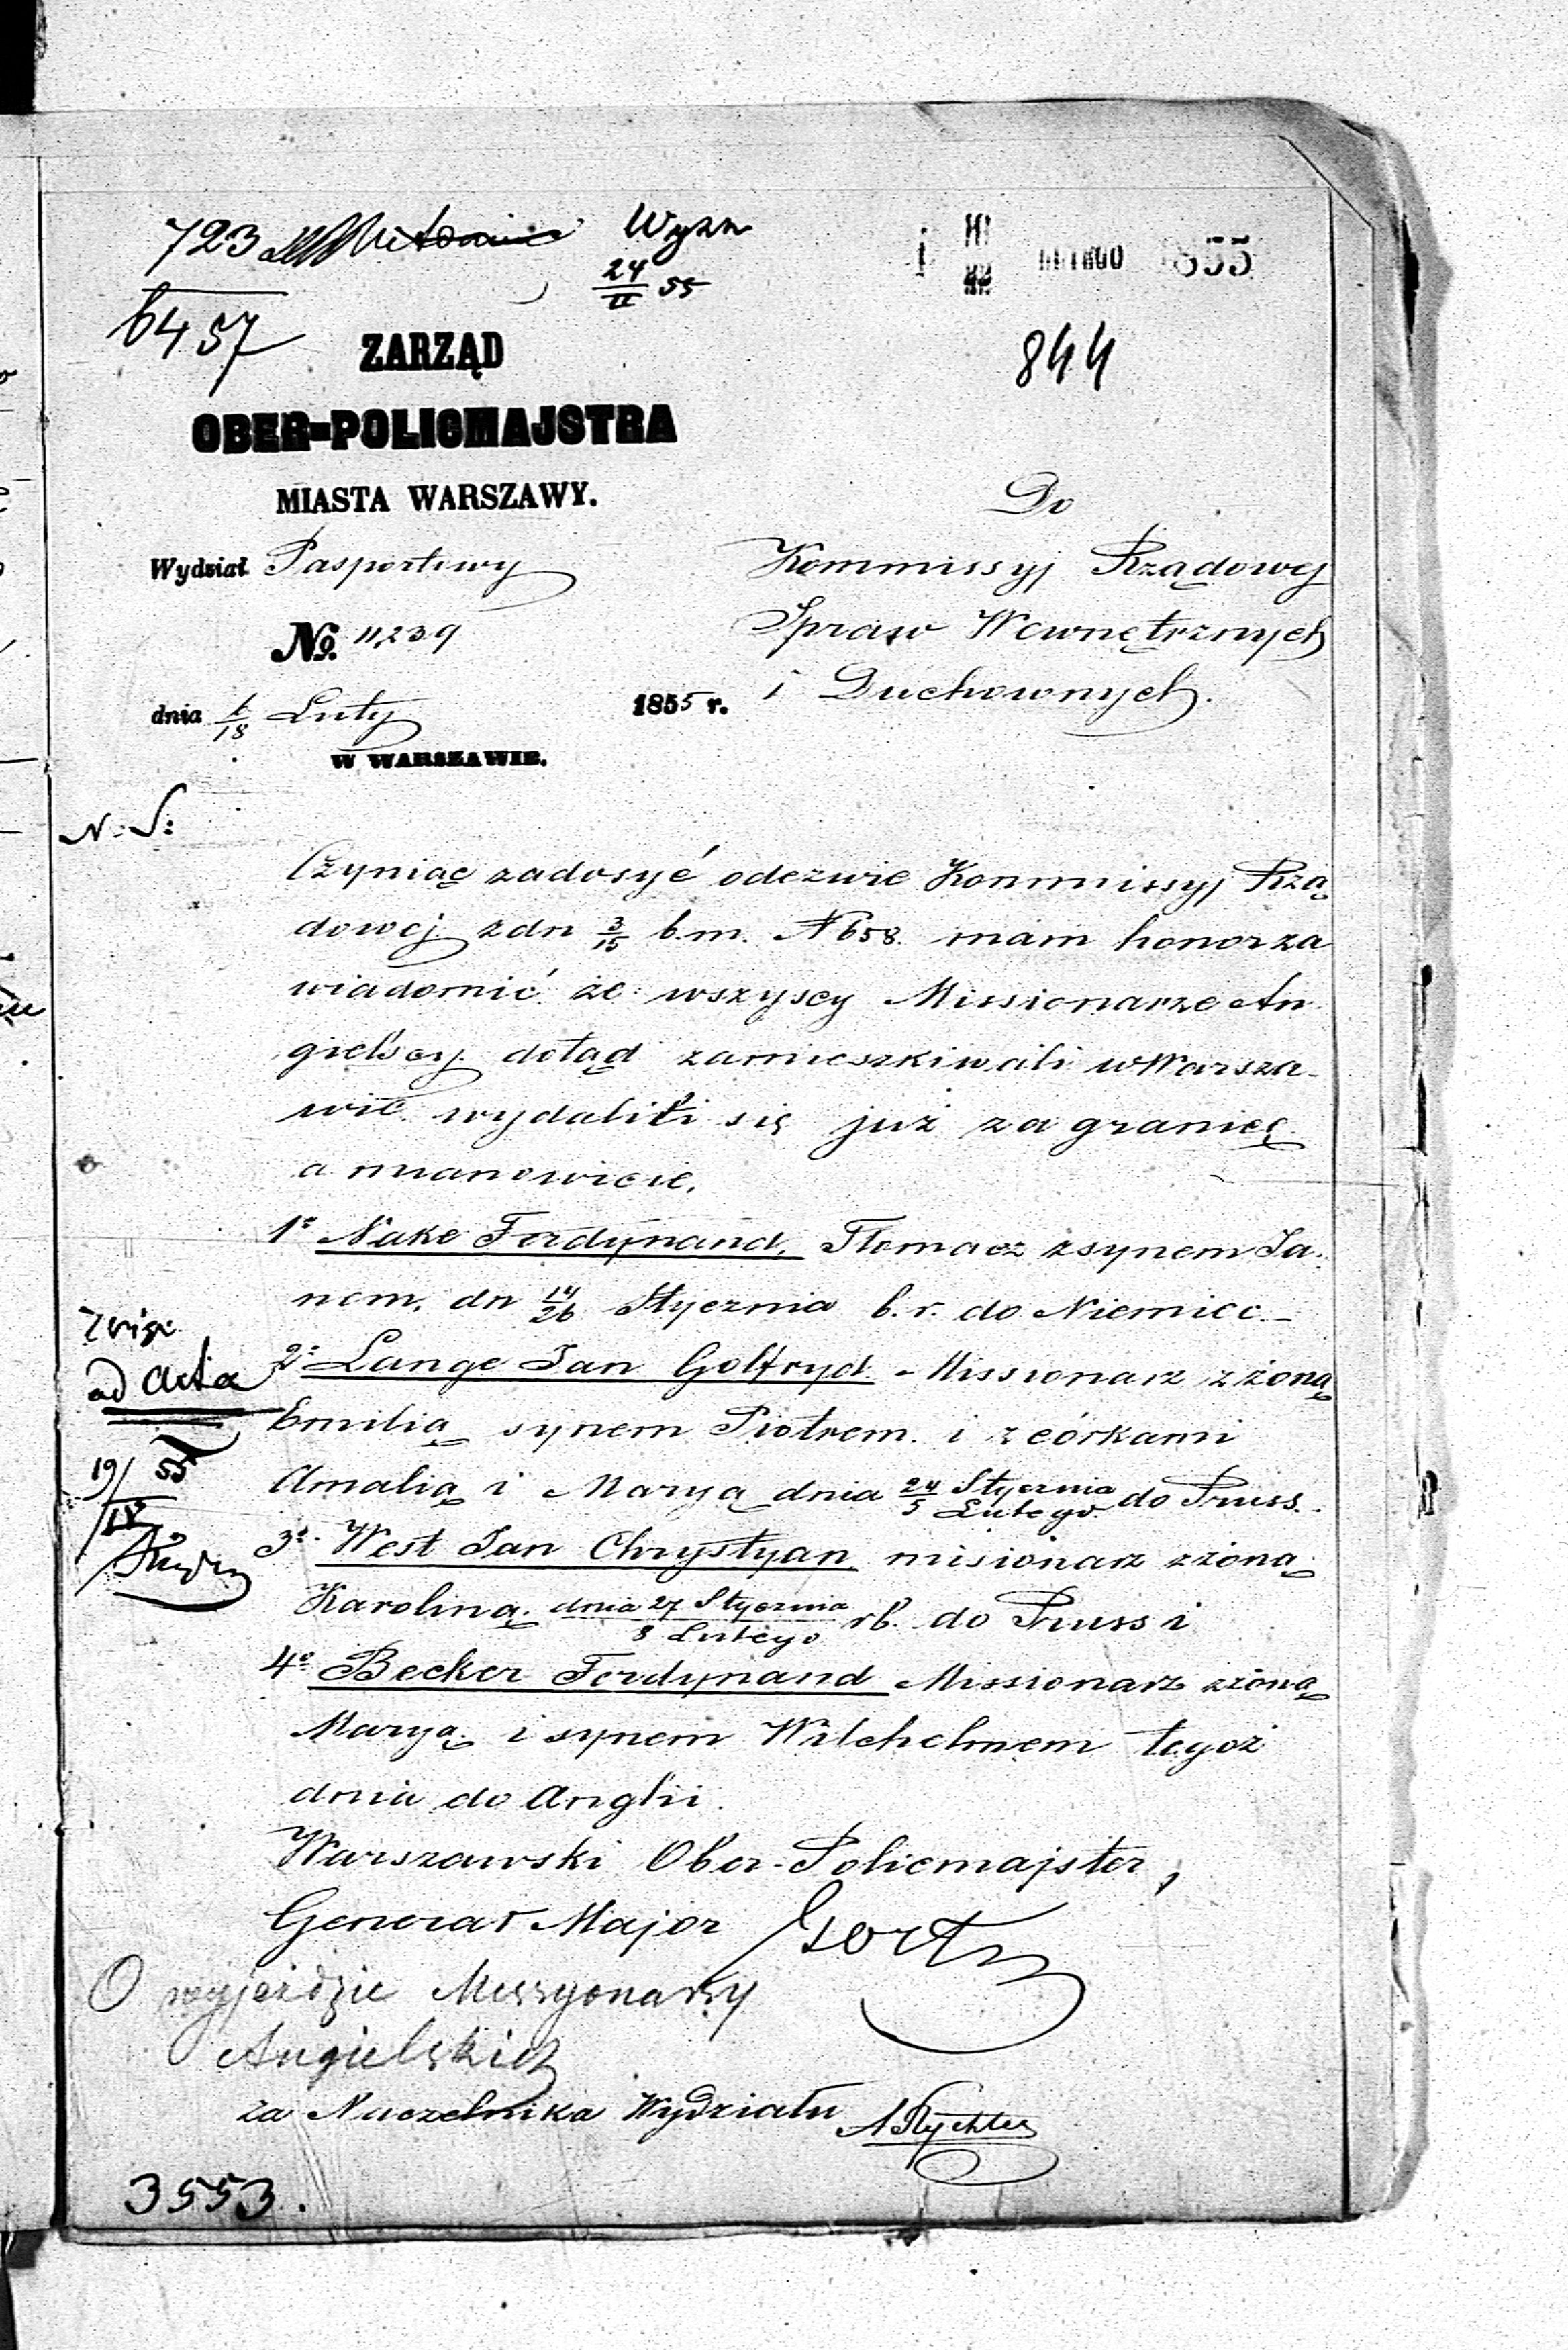 723
6457
Wyzn
24/II 55
LUTEGO 1855
844
ZARZĄD
OBER-POLICMAJSTRA
MIASTA WARSZAWY.
Wydział Pasportowy
No. 11,239
dnia 6/18 Luty 1855 r.
W WARSZAWIE.
Do
Kommissyj Rządowej
Spraw Wewnętrznych
i Duchownych.
N. S:
Czyniąc zadosyć odezwie Kommissyj Rzą
dowej z dn 3/15 b.m. N 658. mam honor za
wiadomić że wszyscy Missionarze An
gielscy dotąd zamieszkiwali w Warsza-
wie wydalili się już za granicę
a mianowicie.
1° Nake Ferdynand, Tłomacz z synem Ja-
nem, dn 14/26 Stycznia b.r. do Niemiec.-
2° Lange Jan Gotfryd - Missionarz z żoną
Emilią synem Piotrem i z córkami
Amalią i Maryą dnia 24 Stycznia/5 Lutego do Pruss.
3° West Jan Chrystyan misionarz z żoną
Karoliną dnia 27 Stycznia/8 Lutego rb. do Pruss i
4° Becker Ferdynand Missionarz z żoną
Maryą i synem Wilchelmem tegoż
dnia do Anglii.
ad acta
19/IV 55
Warszawski Ober-Policmajster,
Generał Major
O wyjeździe Missyonarzy
Angielskich
za Naczelnika Wydziału A Rychter
3553.